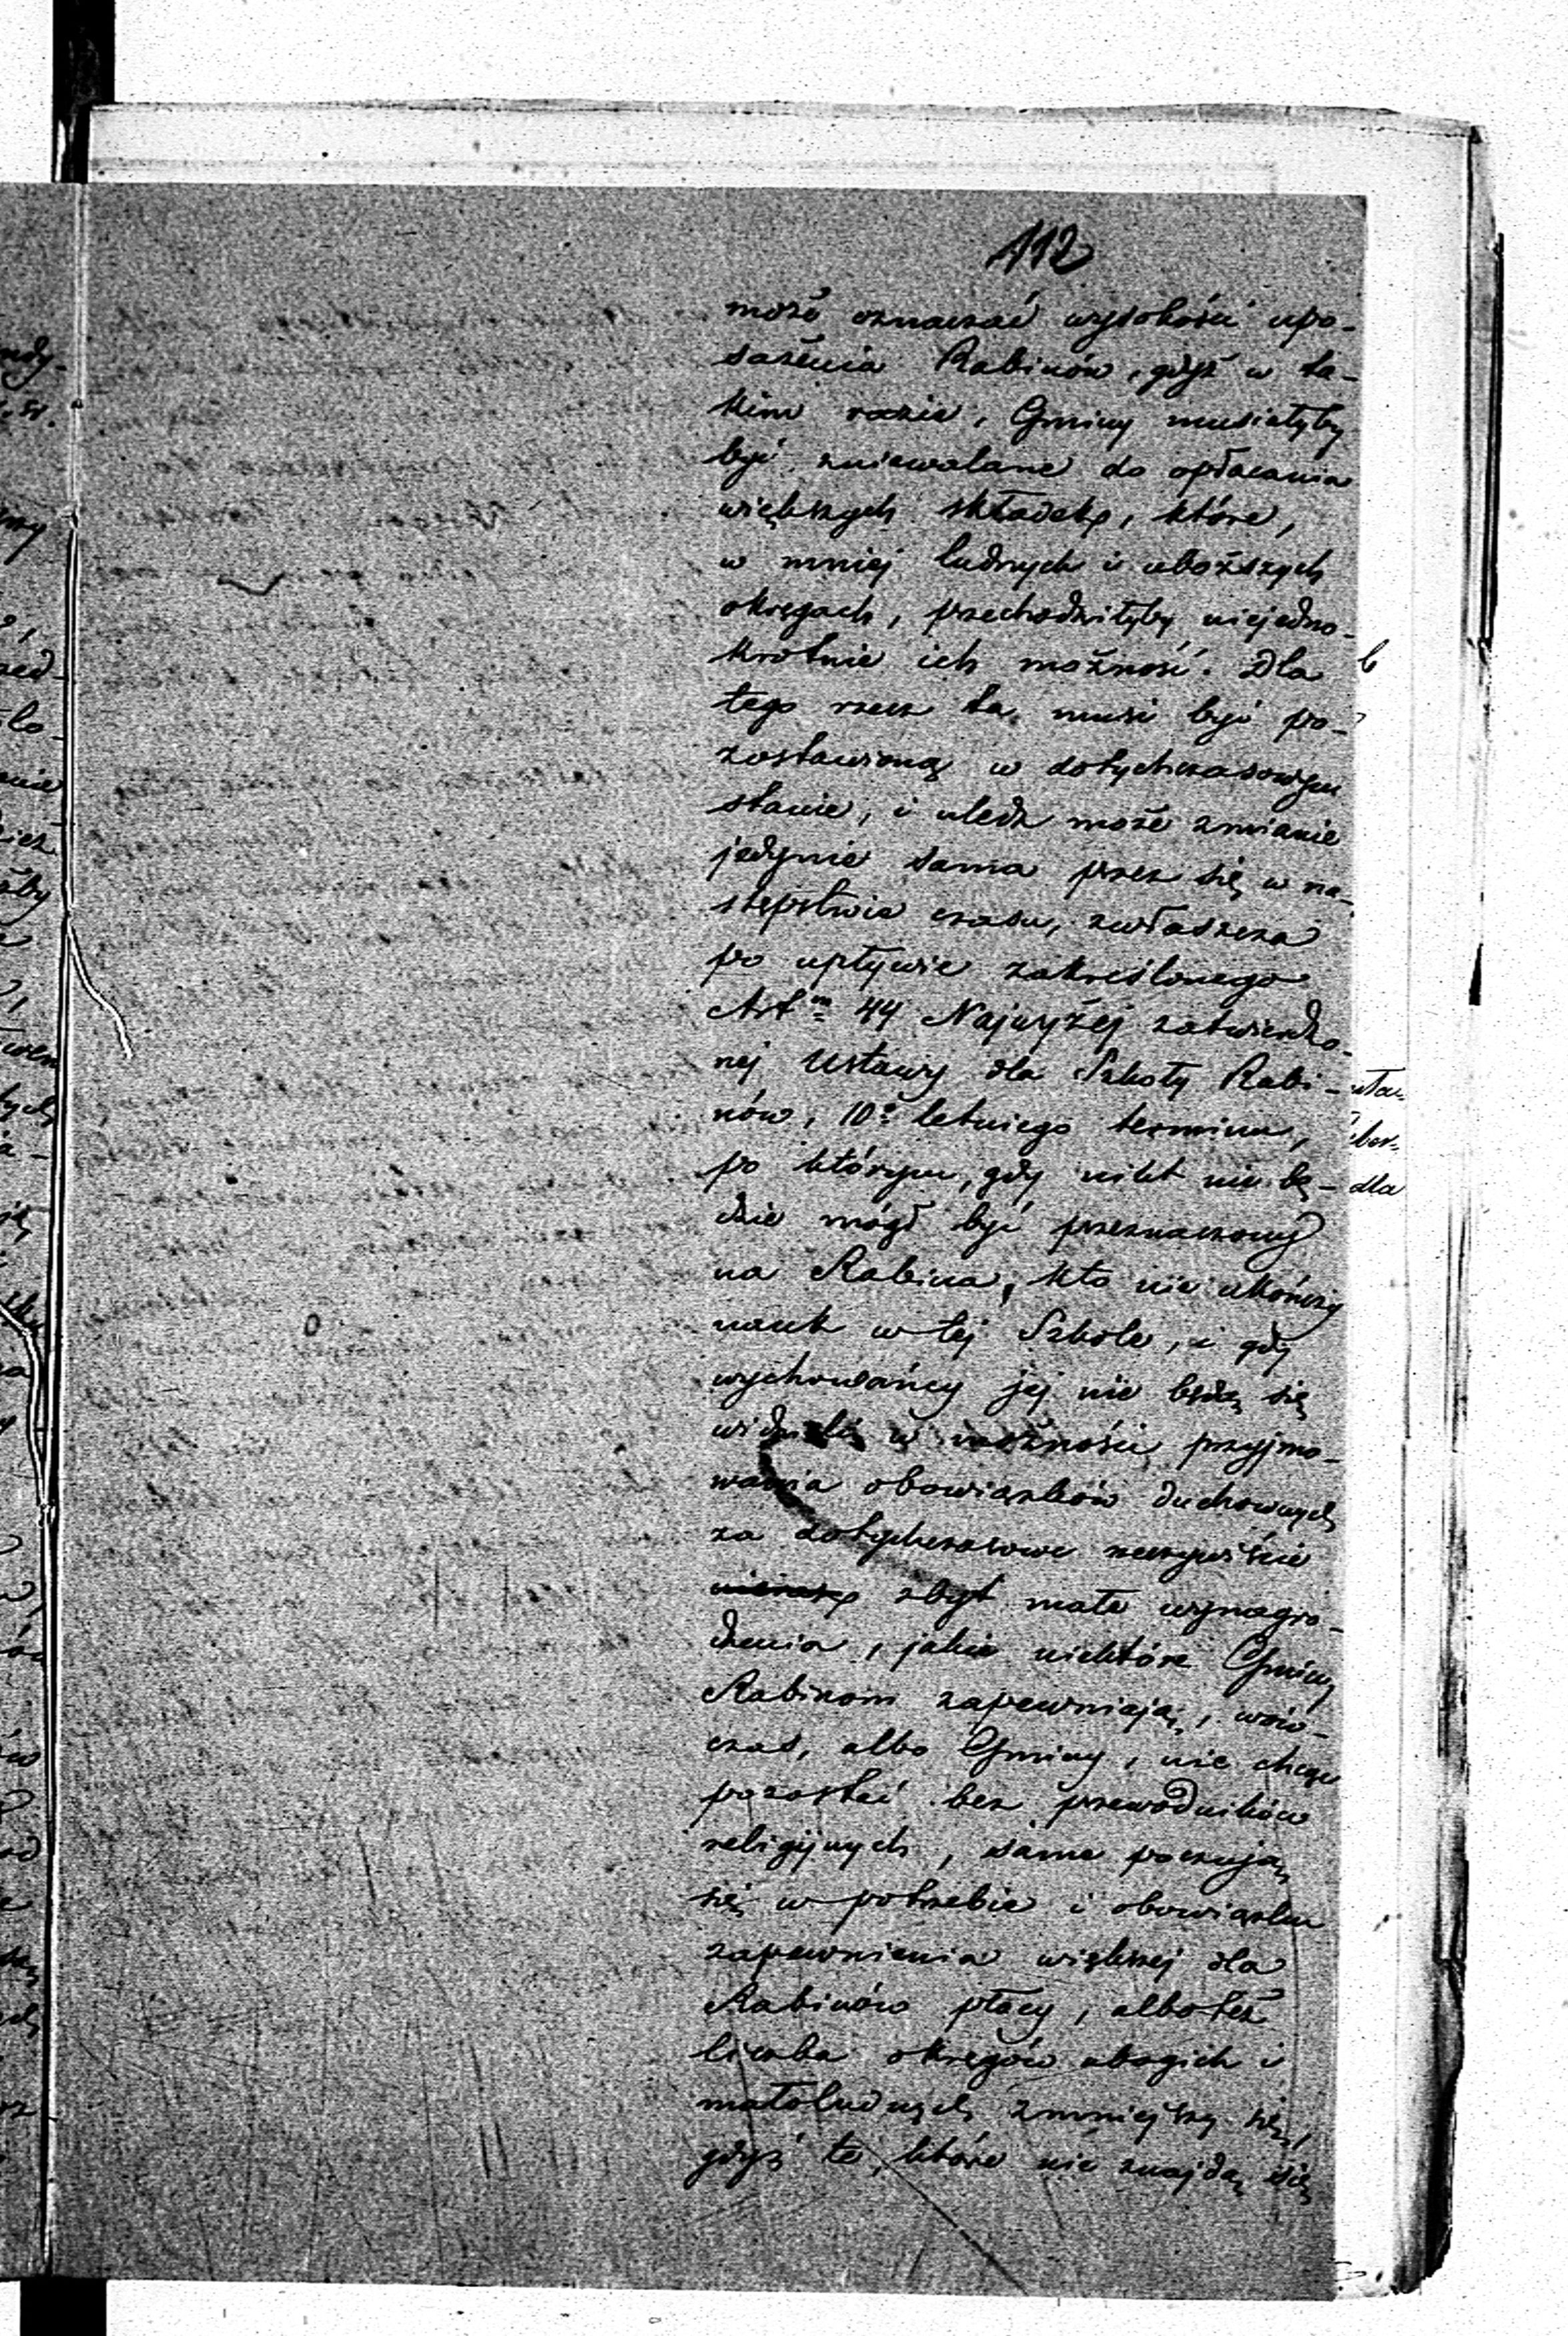 112
może oznaczać wysokości upo-
sażenia Rabinów, gdyż w ta-
kim razie, Gminy musiałyby
być zniewalane do opłacania
większych składek, które,
w mniej ludnych i uboższych
okręgach, przechodziłyby niejedno-
krotnie ich możność. Dla
tego rzecz ta musi być po-
zostawioną w dotychczasowym
stanie, i uledz może zmianie
jedynie sama przez się w na-
stępstwie czasu, zwłaszcza
po upływie zakreślonego
Artm 44 Najwyżej zatwierdzo-
nej Ustawy dla Szkoły Rabi-
nów, 10o letniego terminu,
po którym, gdy nikt nie bę-
dzie mógł być przeznaczony
na Rabina, kto nie ukończy
nauk w tej Szkole, i gdy
wychowańcy jej nie będą się
widzieli w możności przyjmo-
wania obowiązków duchownych
za dotychczasowe rzeczywiście
zbyt małe wynagro-
dzenia, jakie niektóre Gminy
Rabinom zapewniają, wów-
czas, albo Gminy, nie chcąc
pozostać bez przewodników
religijnych, same poczują
się w potrzebie i obowiązku
zapewnienia większej dla
Rabinów płacy, albo też
liczba okręgów ubogich i
małoludnych zmniejszy się,
gdyż te, które nie znajdą się
dla